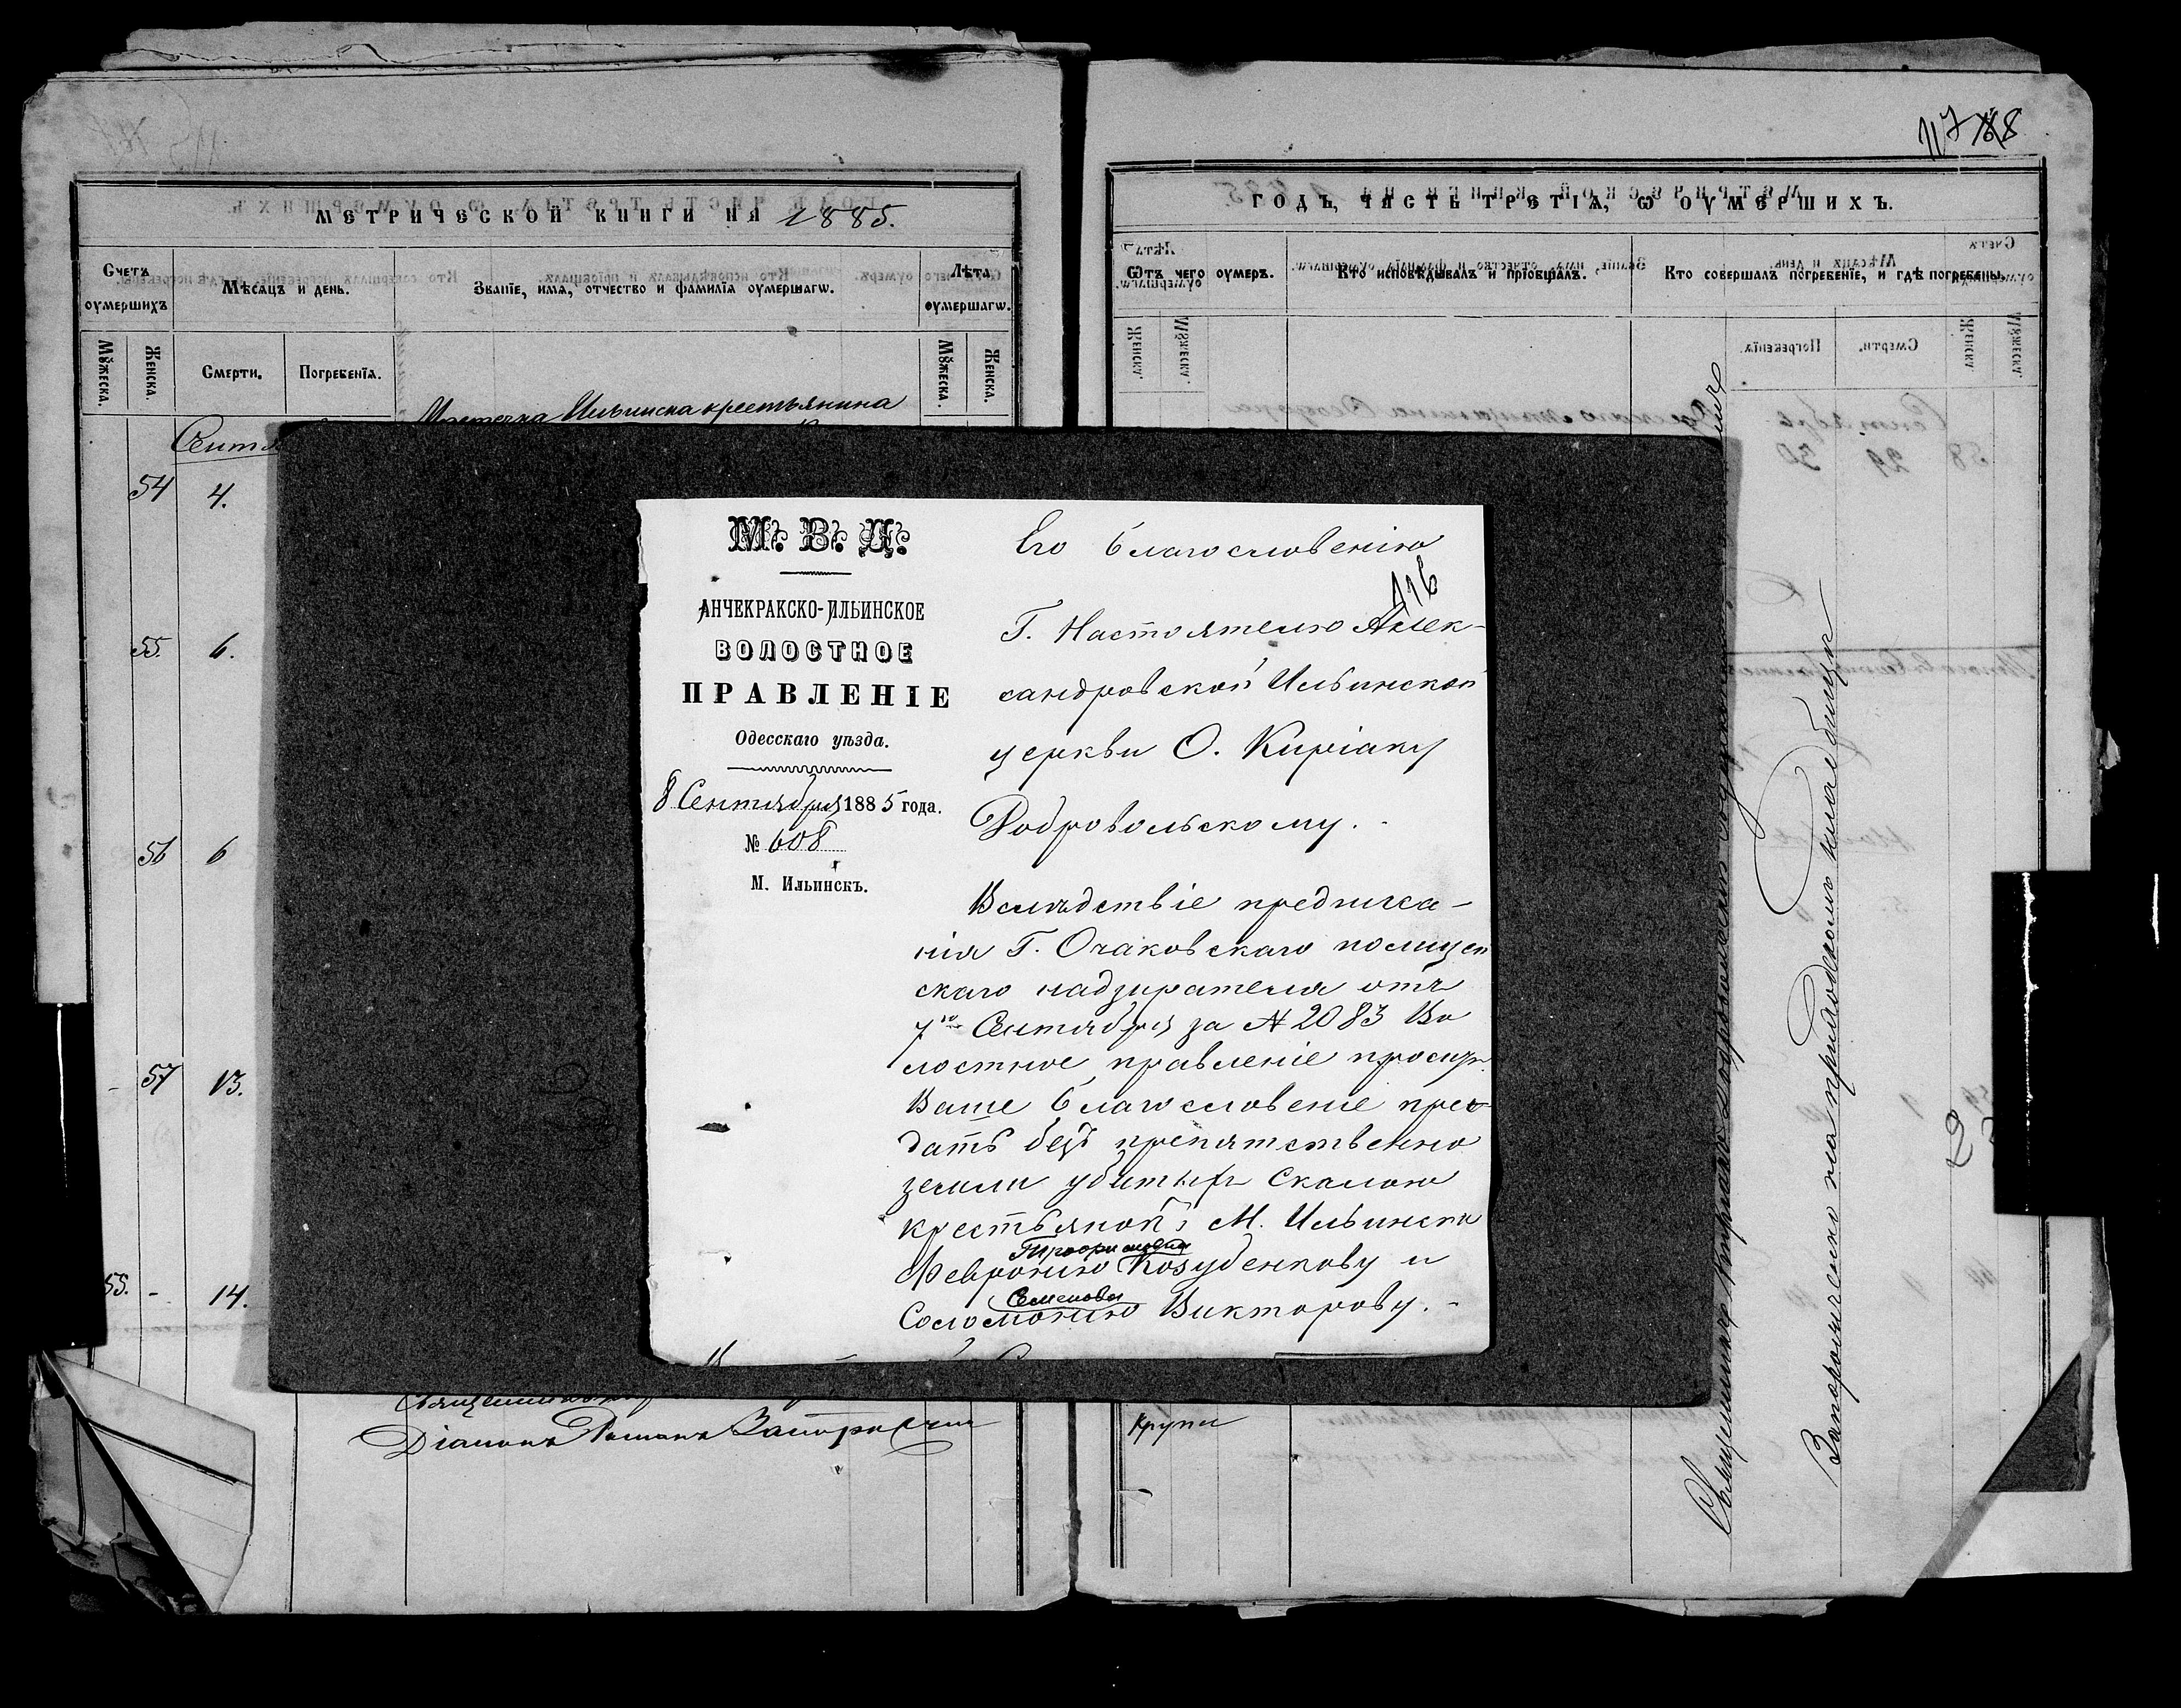 117
МЕТРИЧЕСКОЙ КНИГИ НА 1885.
Счетъ оумершихъ
Мѣсяцъ и день.
Званїе, имя, отчество и фамилїя оумершагѡ.
Лѣта оумершагѡ.
Мꙋжеска.
Женска.
Смерти.
Погребенїя.
Мꙋжеска.
Женска.
Местечка Ильинска крестьянина
54 4.
55. 6.
56 6
57 13.
55. - 14.
Діаконъ Романъ
ГОДЪ, ЧАСТЬ ТРЕТІЯ, Ѡ ОУМЕРШИХЪ.
Ѿтъ чего оумеръ.
Кто исповѣдывалъ и прїобщалъ.
Кто совершалъ погребенїе, и гдѣ погребены.
М. В. Д.
АНЧЕКРАКСКО-ИЛЬИНСКОЕ
ВОЛОСТНОЕ
ПРАВЛЕНІЕ
Одесскаго уѣзда.
8 Сентября 1885 года.
№ 608
М. Ильинскъ.
Его благословенію
116
Г. Настоятелю Алек-
сандровской Ильинской
церкви О. Киріаку
Добровольскому.
Вслѣдствіе предписа-
нія Г. Очаковскаго полицей
скаго надзирателя отъ
7го Сентября за № 2083 Во
лостное правленіе проситъ
Ваше благословеніе пре
дать безъ препятственно
земли убитыхъ скалою
крестьянокъ М. Ильинска
Февронию Козубенкову и
Семенова
Соломонию Викторову.
Крупи
Священникъ Киріакъ Добровольскій
на приходскомъ кладбищѣ